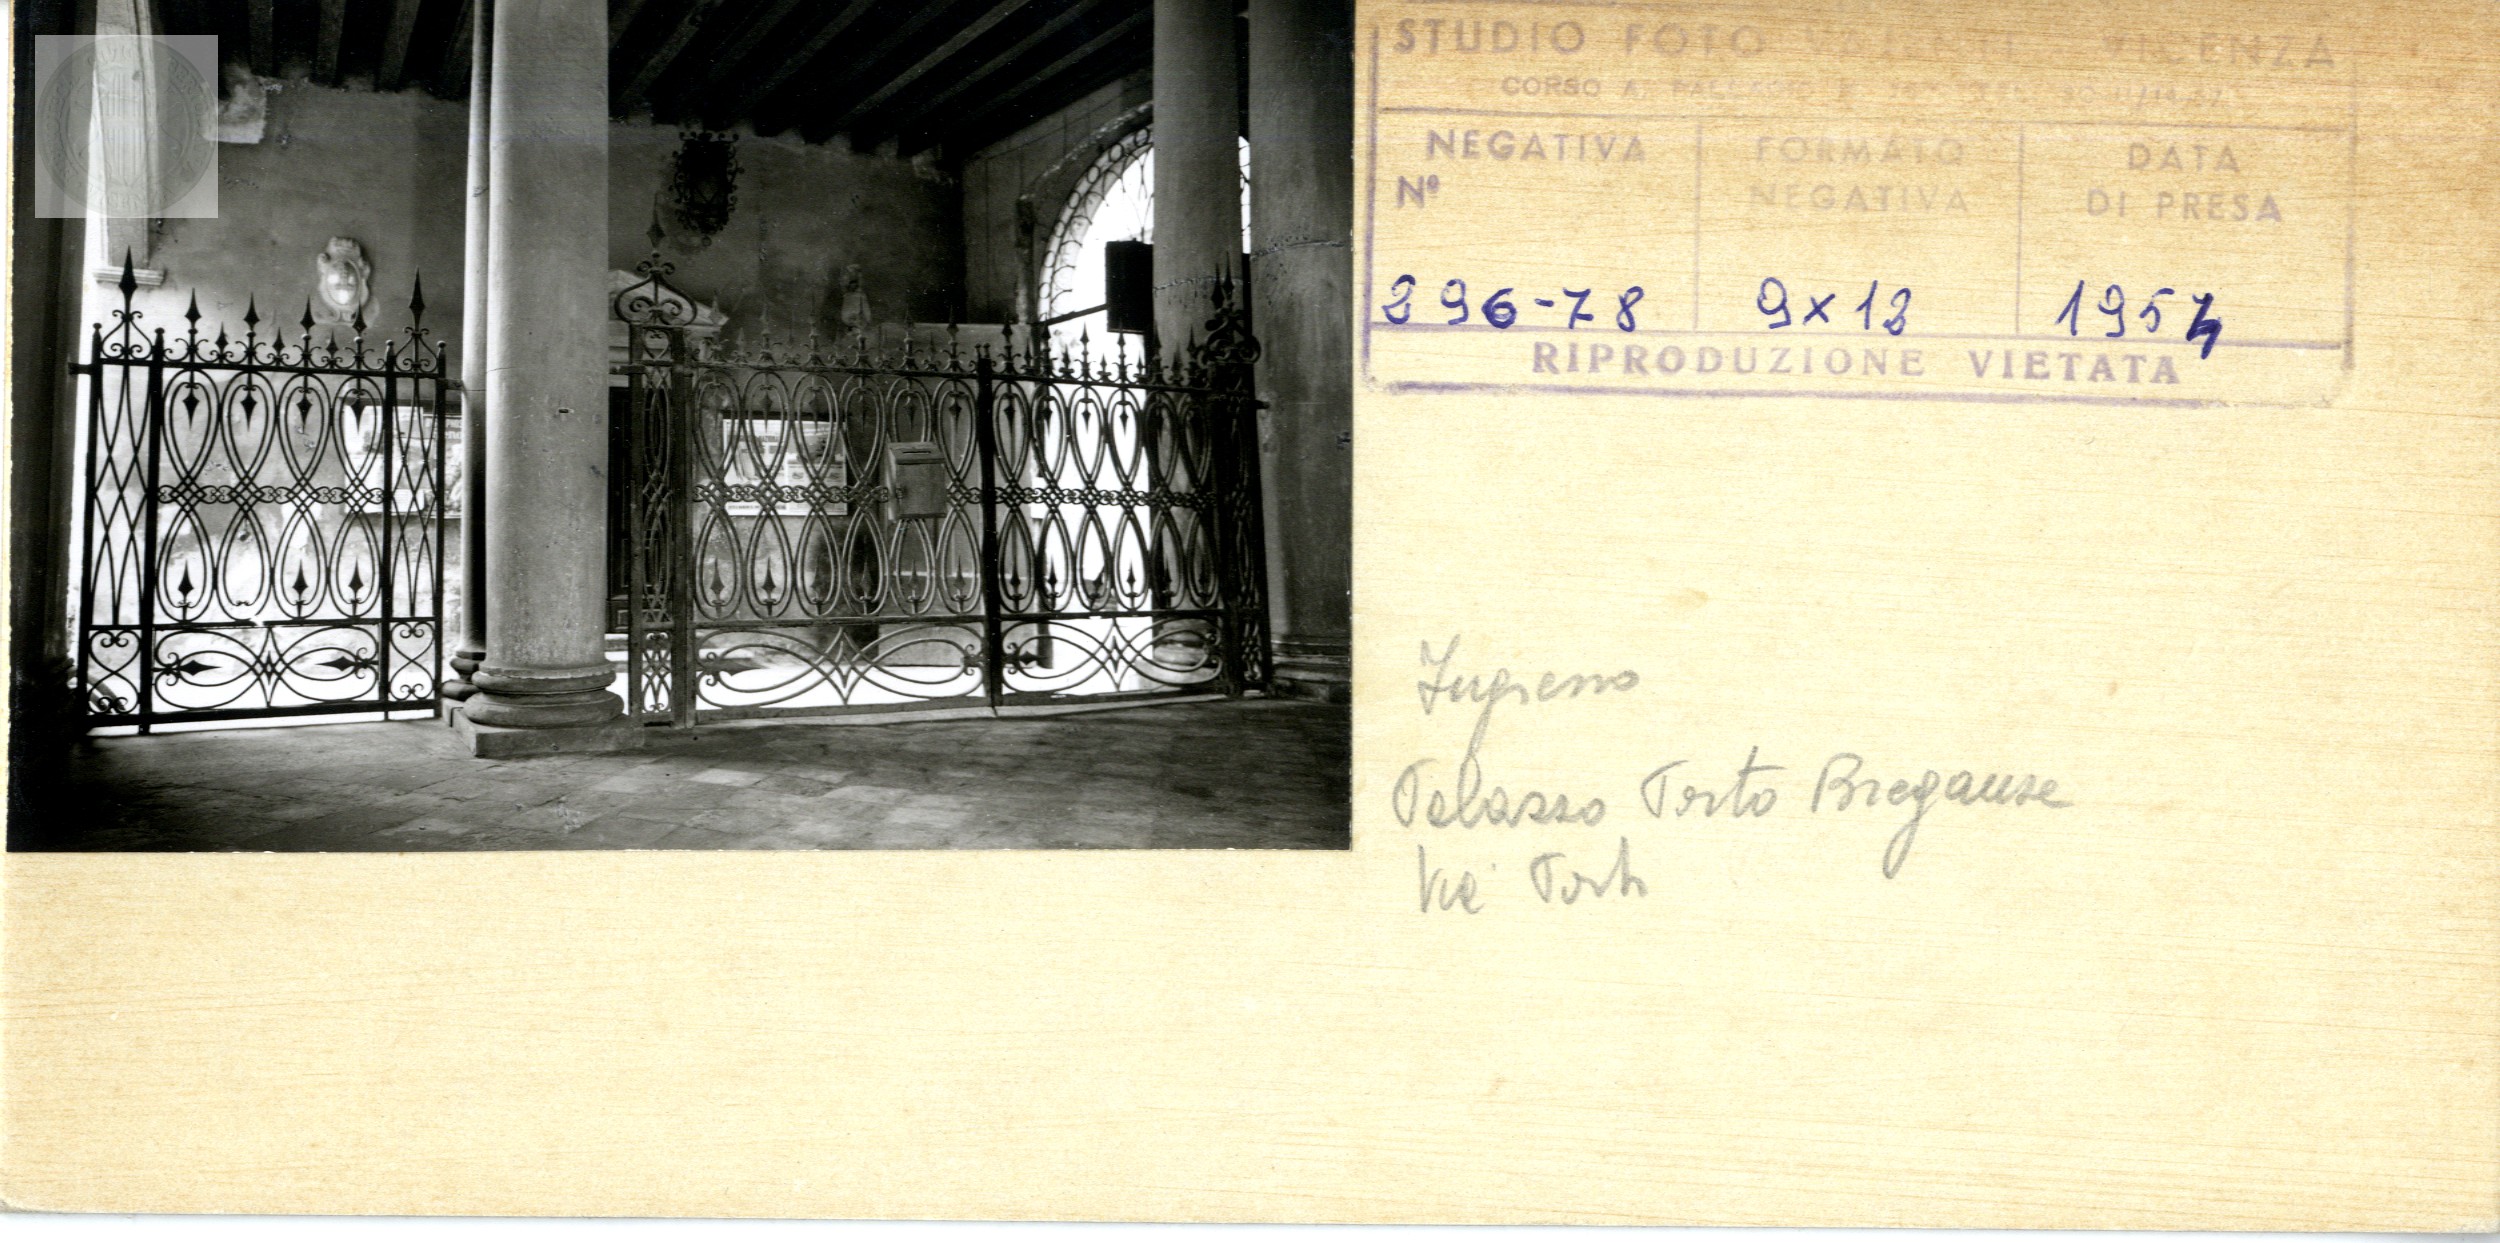 STUDIO FOTO VICENZA
CORSO A. PALLADIO
NEGATIVA
Nº
FORMATO
NEGATIVA
DATA
DI PRESA
296-78 9x12 1954
RIPRODUZIONE VIETATA
Ingresso
Palazzo Porto Breganze
Via Porti